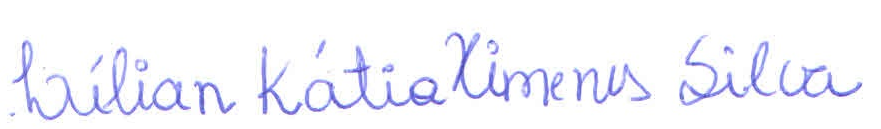 Lílian Kátia Ximenes Silva